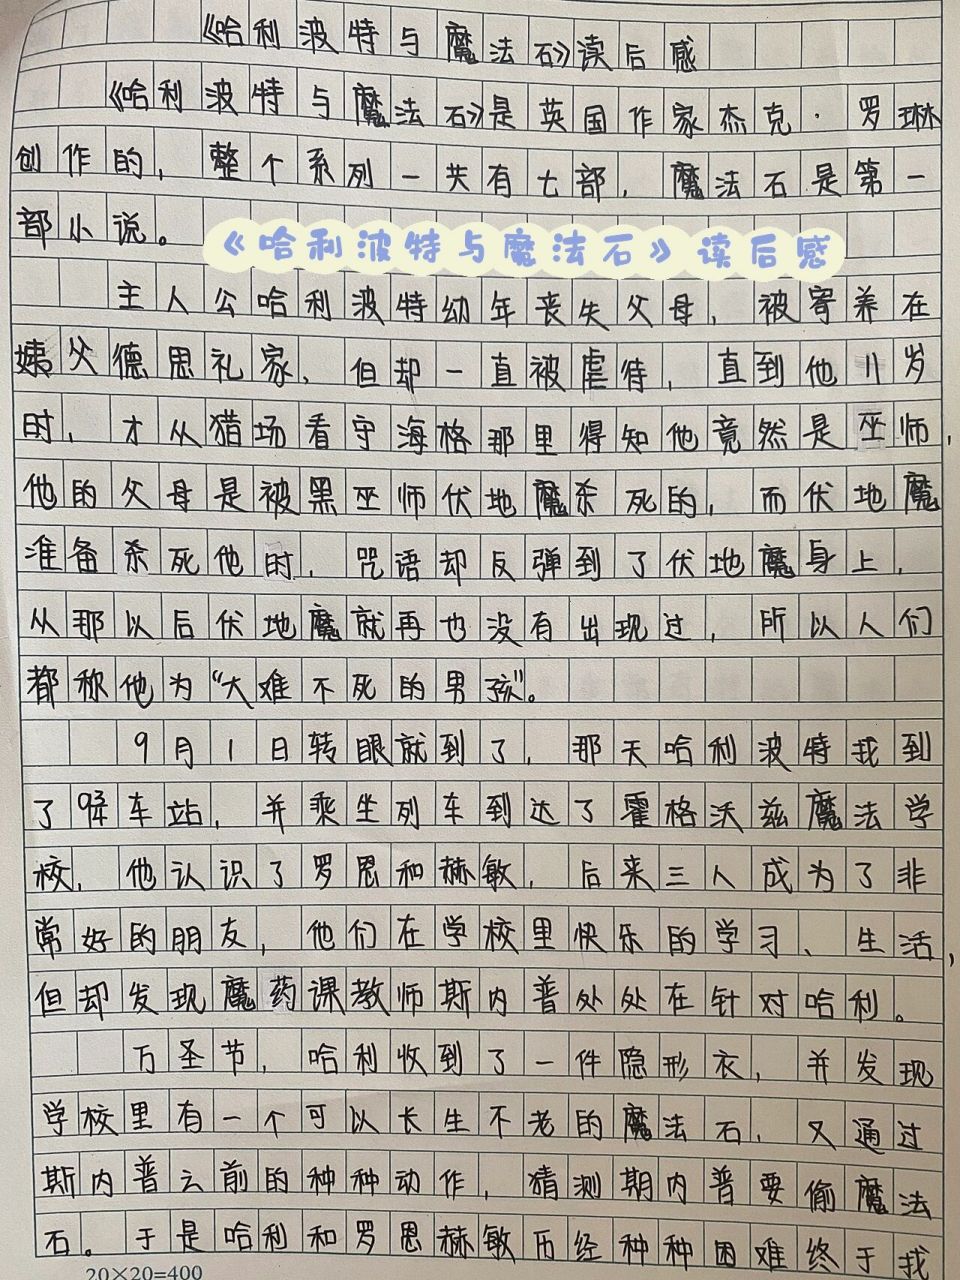 《哈利波特与魔法石》读后感
《哈利波特与魔法石》是英国作家杰克·罗琳
创作的，整个系列一共有七部，魔法石是第一
部小说。
《哈利波特与魔法石》读后感
主人公哈利波特幼年丧失父母，被寄养在
姨父德思礼家，但却一直被虐待，直到他11岁
时，才从猎场看守海格那里得知他竟然是巫师，
他的父母是被黑巫师伏地魔杀死的，而伏地魔
准备杀死他时，咒语却反弹到了伏地魔身上，
从那以后伏地魔就再也没有出现过，所以人们
都称他为“大难不死的男孩”。
9月1日转眼就到了，那天哈利波特找到
了9¾车站，并乘坐列车到达了霍格沃兹魔法学
校，他认识了罗恩和赫敏，后来三人成为了非
常好的朋友，他们在学校里快乐的学习、生活，
但却发现魔药课教师斯内普处处在针对哈利。
万圣节，哈利收到了一件隐形衣，并发现
学校里有一个可以长生不老的魔法石，又通过
斯内普云前的种种动作，猜测期内普要偷魔法
石。于是哈利和罗恩赫敏历经种种困难终于找
20×20=400